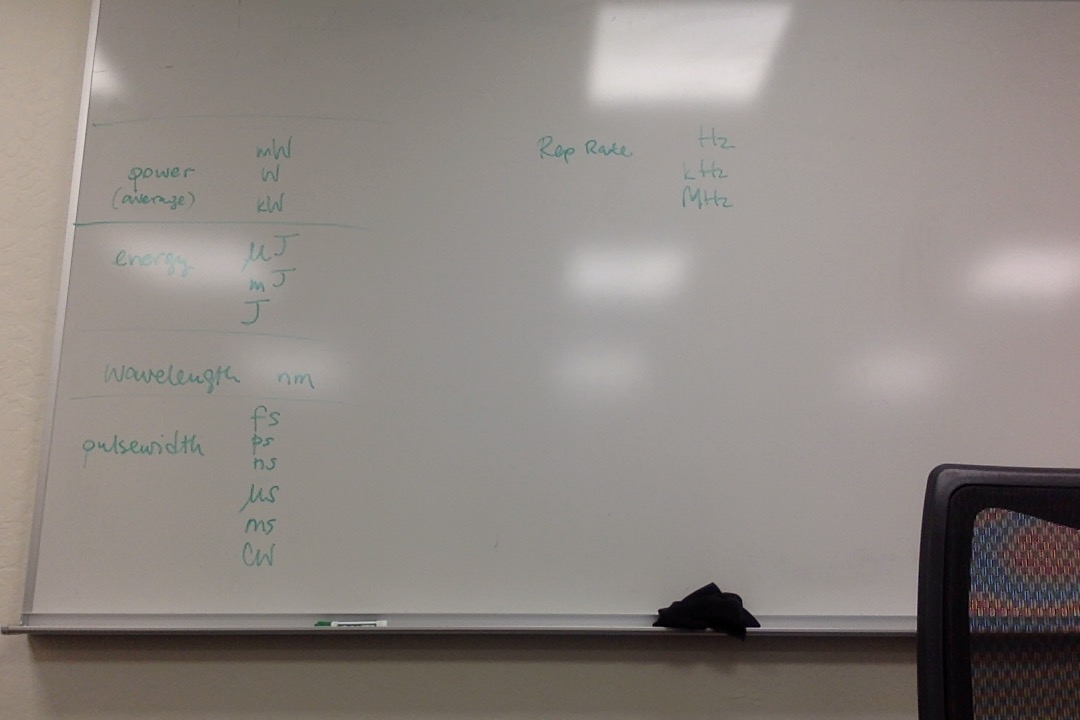 mW
power W
(average) kW
energy μJ
mJ
J
Wavelength nm
fs
pulsewidth ps
ns
μs
ms
CW
Rep Rate Hz
kHz
MHz